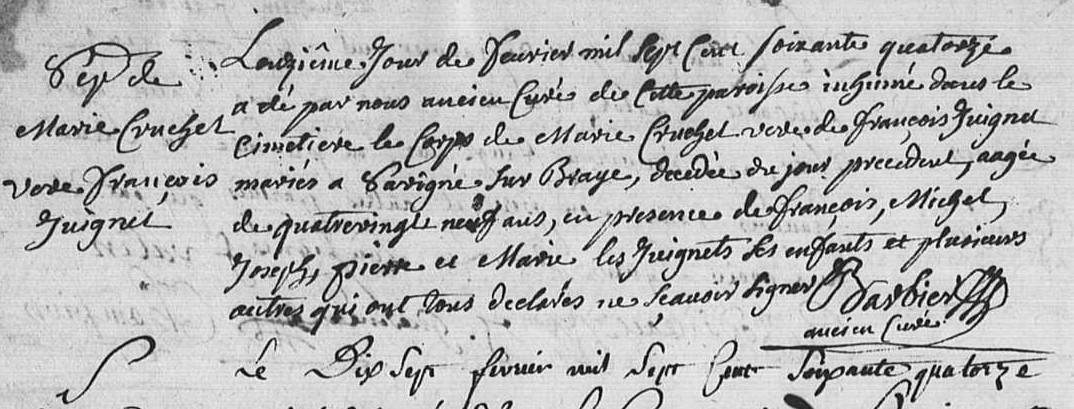 Sép. de
Marie Cruchet
veve françois
Juignet
L'onziême Jour de feuvrier mil sept Cent soixante quatorze
a élé par nous ancien Curé de Cette paroisse inhumé dans le
Cimetiere le Corps de Marie Cruchet veve de françois Juignet
mariés a Savigné sur Braye, decedée du jour precedent, aagée
de quatrevingt neuf ans, en presence de françois, Michel,
Joseph, pierre et Marie les Juignets ses enfants et plusieurs
autres qui ont tous declarés ne sçavoir signer Barbier
ancien Curé
Le Dix sept fevrier mil sept Cent soixante quatorze